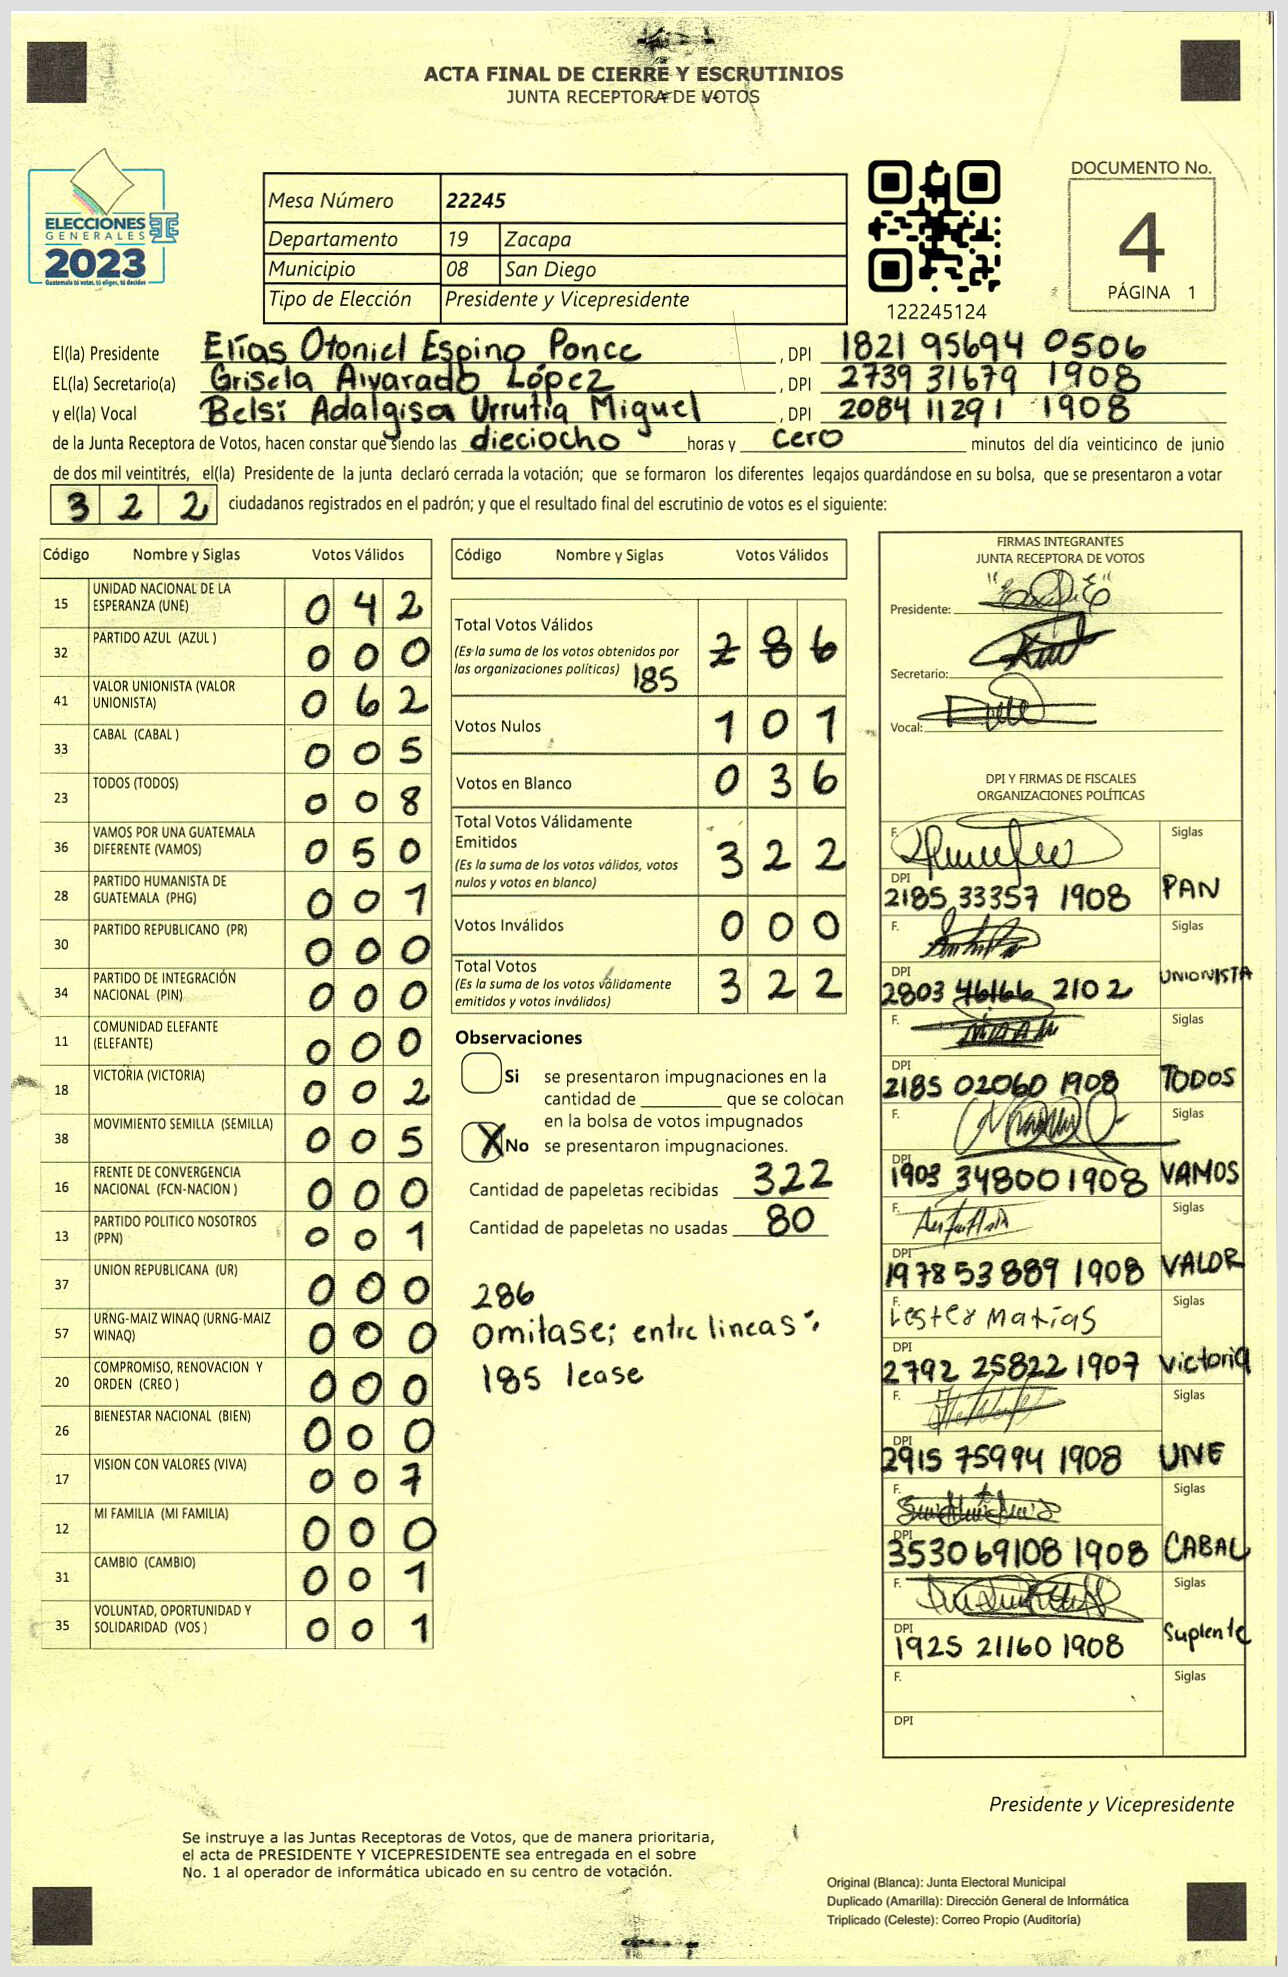 ACTA FINAL DE CIERRE Y ESCRUTINIOS
JUNTA RECEPTORA DE VOTOS
ELECCIONES
GENERALES
2023
Guatemala tú votas, tú eliges, tú decides
Mesa Número 22245
Departamento 19 Zacapa
Municipio 08 San Diego
Tipo de Elección Presidente y Vicepresidente
122245124
DOCUMENTO No.
4
PÁGINA 1
El(la) Presidente Elías Otoniel Espino Ponce, DPI 1821 95694 0506
EL(la) Secretario(a) Grisela Alvarado López, DPI 2739 31679 1908
y el(la) Vocal Belsi Adalgisa Urrutia Miguel, DPI 2084 11291 1908
de la Junta Receptora de Votos, hacen constar que siendo las dieciocho horas y cero minutos del día veinticinco de junio
de dos mil veintitrés, el(la) Presidente de la junta declaró cerrada la votación; que se formaron los diferentes legajos guardándose en su bolsa, que se presentaron a votar
3 2 2 ciudadanos registrados en el padrón; y que el resultado final del escrutinio de votos es el siguiente:
Código Nombre y Siglas Votos Válidos
15 UNIDAD NACIONAL DE LA ESPERANZA (UNE) 0 4 2
32 PARTIDO AZUL (AZUL ) 0 0 0
41 VALOR UNIONISTA (VALOR UNIONISTA) 0 6 2
33 CABAL (CABAL ) 0 0 5
23 TODOS (TODOS) 0 0 8
36 VAMOS POR UNA GUATEMALA DIFERENTE (VAMOS) 0 5 0
28 PARTIDO HUMANISTA DE GUATEMALA (PHG) 0 0 1
30 PARTIDO REPUBLICANO (PR) 0 0 0
34 PARTIDO DE INTEGRACIÓN NACIONAL (PIN) 0 0 0
11 COMUNIDAD ELEFANTE (ELEFANTE) 0 0 0
18 VICTORIA (VICTORIA) 0 0 2
38 MOVIMIENTO SEMILLA (SEMILLA) 0 0 5
16 FRENTE DE CONVERGENCIA NACIONAL (FCN-NACION ) 0 0 0
13 PARTIDO POLITICO NOSOTROS (PPN) 0 0 1
37 UNION REPUBLICANA (UR) 0 0 0
57 URNG-MAIZ WINAQ (URNG-MAIZ WINAQ) 0 0 0
20 COMPROMISO, RENOVACION Y ORDEN (CREO ) 0 0 0
26 BIENESTAR NACIONAL (BIEN) 0 0 0
17 VISION CON VALORES (VIVA) 0 0 7
12 MI FAMILIA (MI FAMILIA) 0 0 0
31 CAMBIO (CAMBIO) 0 0 1
35 VOLUNTAD, OPORTUNIDAD Y SOLIDARIDAD (VOS ) 0 0 1
Código Nombre y Siglas Votos Válidos
Total Votos Válidos
(Es la suma de los votos obtenidos por
las organizaciones políticas) 185 2 8 6
Votos Nulos 1 0 1
Votos en Blanco 0 3 6
Total Votos Válidamente
Emitidos
(Es la suma de los votos válidos, votos
nulos y votos en blanco) 3 2 2
Votos Inválidos 0 0 0
Total Votos
(Es la suma de los votos válidamente
emitidos y votos inválidos) 3 2 2
Observaciones
Si se presentaron impugnaciones en la
cantidad de ________ que se colocan
en la bolsa de votos impugnados
X No se presentaron impugnaciones.
Cantidad de papeletas recibidas 322
Cantidad de papeletas no usadas 80
286
Omitase; entre lineas:
185 lease
FIRMAS INTEGRANTES
JUNTA RECEPTORA DE VOTOS
Presidente:
Secretario:
Vocal:
DPI Y FIRMAS DE FISCALES
ORGANIZACIONES POLÍTICAS
F. Siglas
DPI
2185 33357 1908 PAN
F. Siglas
DPI
2803 46166 2102 UNIONISTA
F. Siglas
DPI
2185 02060 1908 TODOS
F. Siglas
DPI
1903 34800 1908 VAMOS
F. Siglas
DPI
1978 53889 1908 VALOR
F. Lester Matías Siglas
DPI
2792 25822 1907 Victoria
F. Siglas
DPI
2915 75994 1908 UNE
F. Siglas
DPI
3530 69108 1908 CABAL
F. Siglas
DPI
1925 21160 1908 Suplente
F. Siglas
DPI
Presidente y Vicepresidente
Se instruye a las Juntas Receptoras de Votos, que de manera prioritaria,
el acta de PRESIDENTE Y VICEPRESIDENTE sea entregada en el sobre
No. 1 al operador de informática ubicado en su centro de votación.
Original (Blanca): Junta Electoral Municipal
Duplicado (Amarilla): Dirección General de Informática
Triplicado (Celeste): Correo Propio (Auditoría)